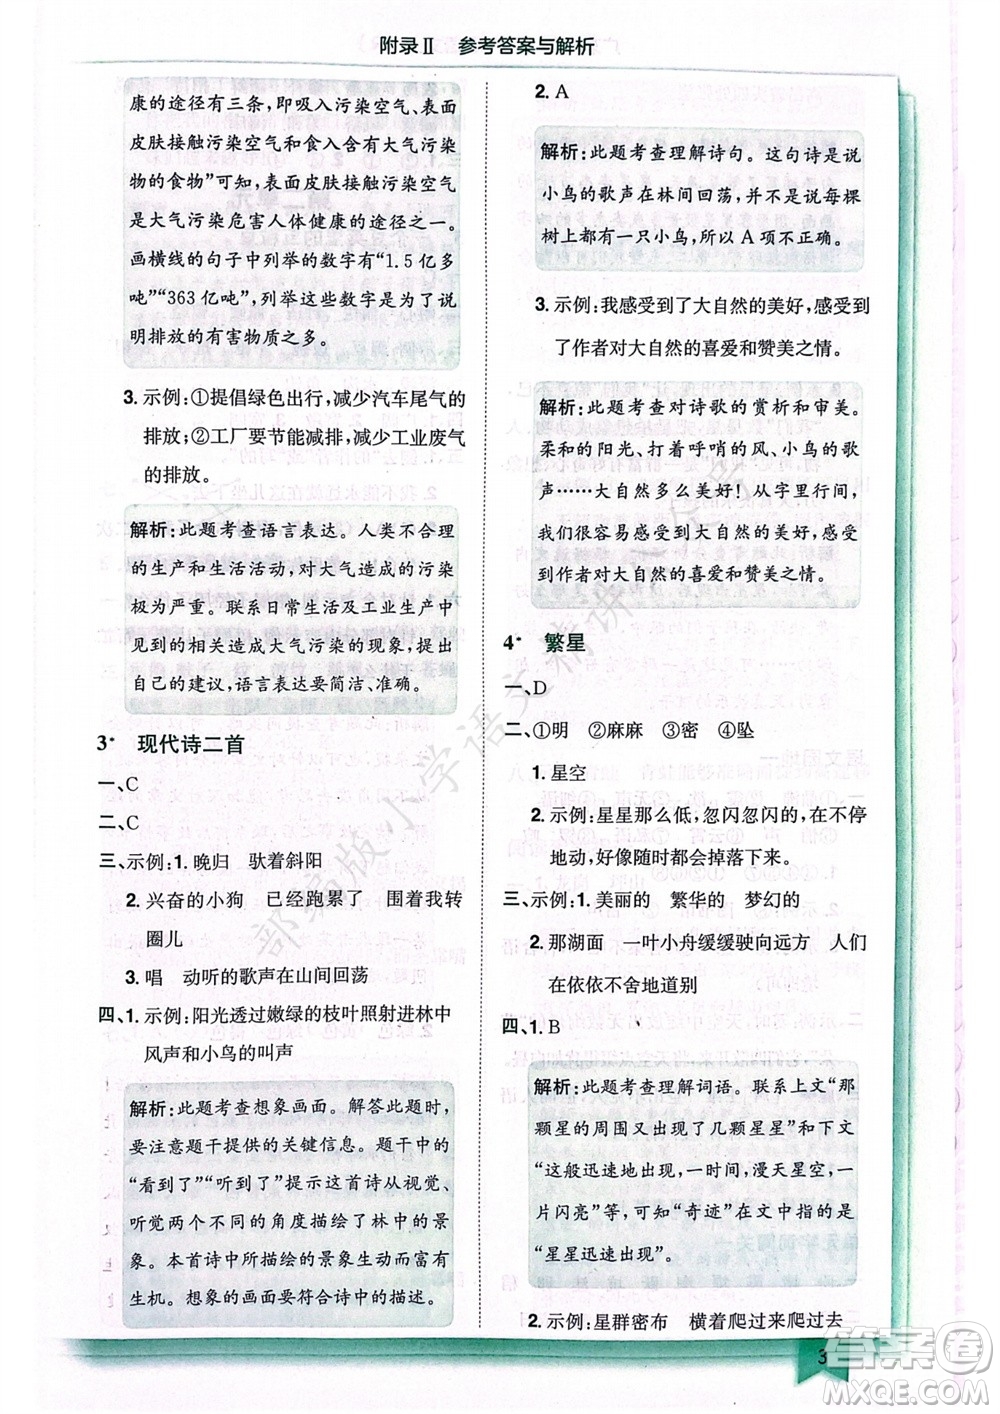 附录Ⅱ 参考答案与解析
康的途径有三条,即吸入污染空气、表面
皮肤接触污染空气和食入含有大气污染
物的食物”可知,表面皮肤接触污染空气
是大气污染危害人体健康的途径之一。
画横线的句子中列举的数字有“1.5 亿多
吨”“363 亿吨”,列举这些数字是为了说
明排放的有害物质之多。
3. 示例:①提倡绿色出行,减少汽车尾气的
排放;②工厂要节能减排,减少工业废气
的排放。
解析:此题考查语言表达。人类不合理
的生产和生活活动,对大气造成的污染
极为严重。联系日常生活或工业生产中
见到的相关造成大气污染的现象,提出
自己的建议,语言表达要简洁、准确。
3* 现代诗二首
一、C
二、C
三、示例:1. 晚归 驮着斜阳
2. 兴奋的小狗 已经跑累了 围着我转
圈儿
3. 唱 动听的歌声在山间回荡
四、1. 示例:阳光透过嫩绿的枝叶照射进林中
风声和小鸟的叫声
解析:此题考查想象画面。解答此题时,
要注意题干提供的关键信息。题干中的
“看到了”“听到了”提示这首诗从视觉、
听觉两个不同的角度描绘了林中的景
象。本首诗中所描绘的景象生动而富有
生机。想象的画面要符合诗中的描述。
2. A
解析:此题考查理解诗句。这句诗是说
小鸟的歌声在林间回荡,并不是说每棵
树上都有一只小鸟,所以 A 项不正确。
3. 示例:我感受到了大自然的美好,感受到
了作者对大自然的喜爱和赞美之情。
解析:此题考查对诗歌的赏析和审美。
柔和的阳光、打着呼哨的风、小鸟的歌
声……大自然多么美好!从字里行间,
我们很容易感受到大自然的美好,感受
到作者对大自然的喜爱和赞美之情。
4* 繁星
一、D
二、①明 ②麻麻 ③密 ④坠
1. 星空
2. 示例:星星那么低,忽闪忽闪的,在不停
地动,好像随时都会掉落下来。
三、示例:1. 美丽的 繁华的 梦幻的
2. 那湖面 一叶小舟缓缓驶向远方 人们
在依依不舍地道别
四、1. B
解析:此题考查理解词语。联系上文“那
颗星的周围又出现了几颗星星”和下文
“这般迅速地出现,一时间,漫天星空,一
片闪亮”等,可知“奇迹”在文中指的是
“星星迅速出现”。
2. 示例:星群密布 横着爬过来爬过去
3
答案圈
MXQE.COM
部编版小学语文精讲